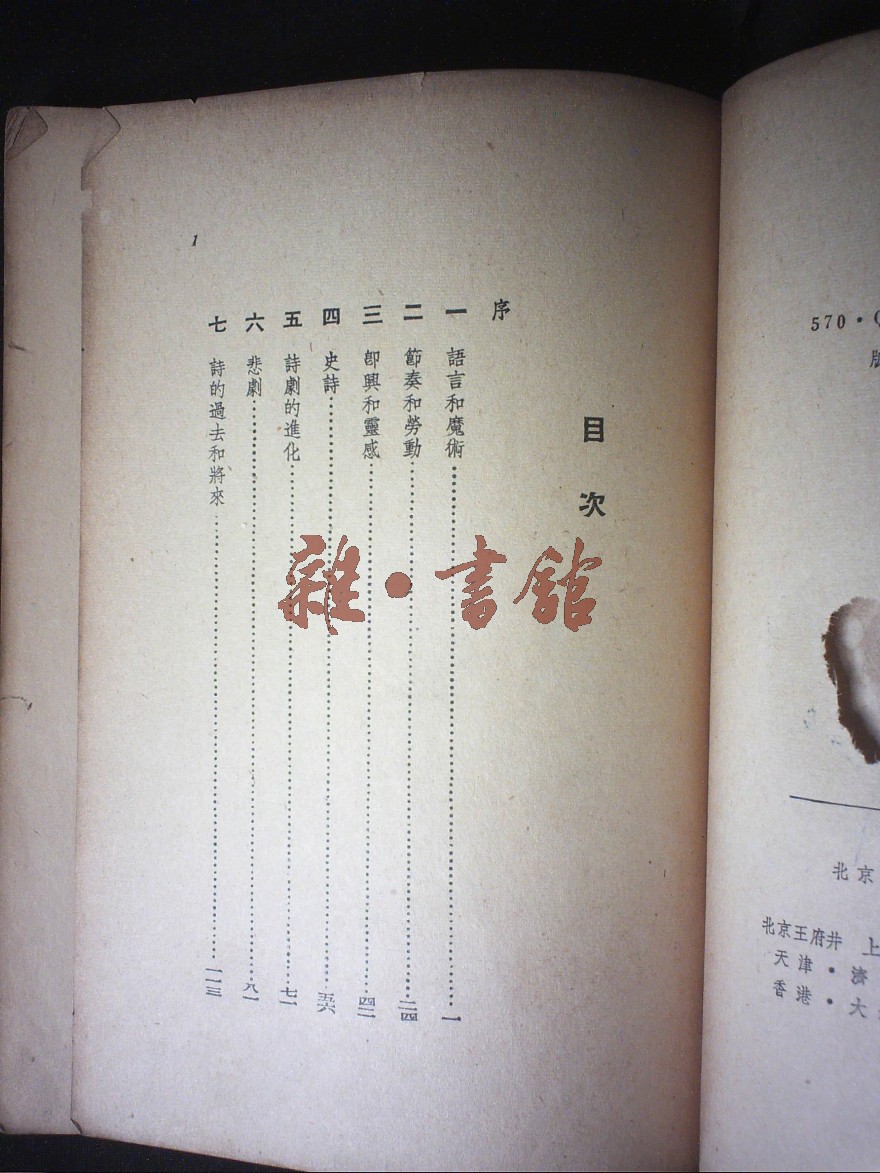 目次
序
一 語言和魔術……一
二 節奏和勞動……二四
三 卽興和靈感……四二
四 史詩……五六
五 詩劇的進化……七一
六 悲劇……八一
七 詩的過去和將來……一一三
1
雜・書館
570・
北京
北京王府井 上
天津・濟
香港・大